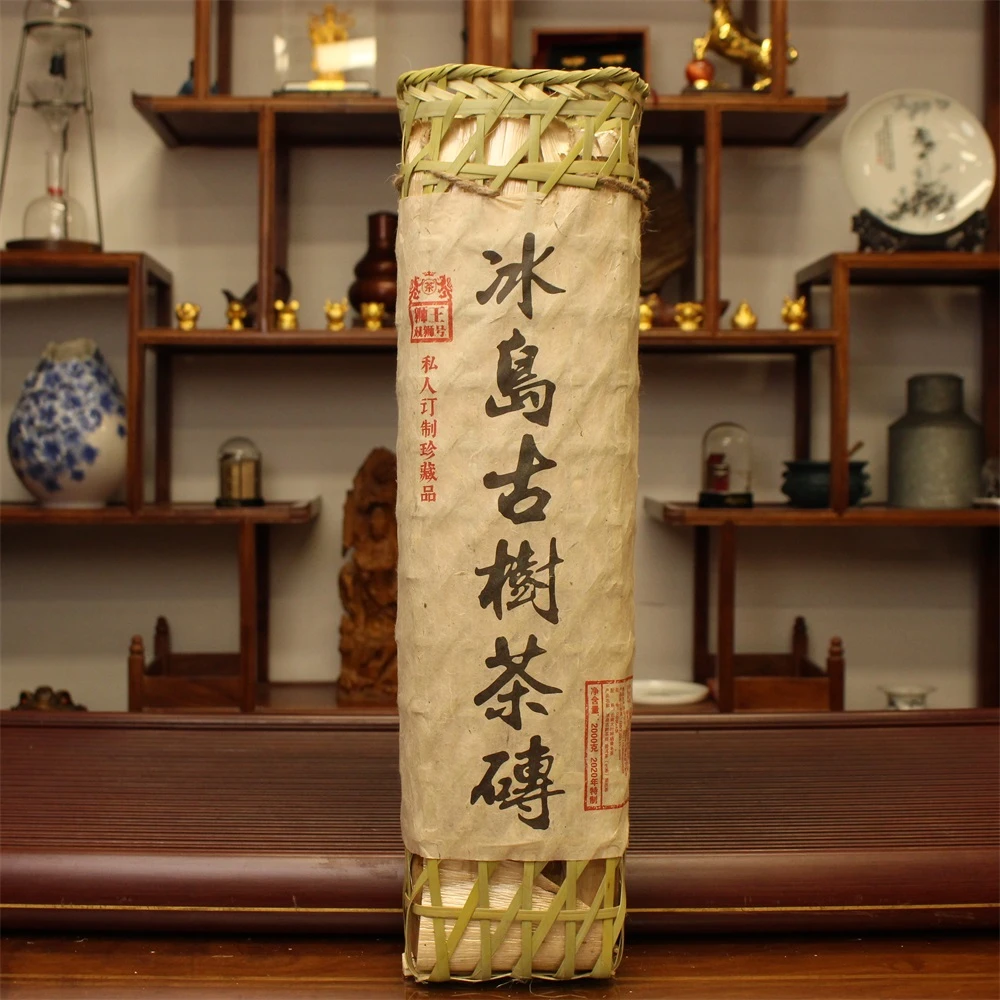 冰島古樹茶磚
茶
狮王
双狮号
私人订制珍藏品
净含量：2000克 2020年特制